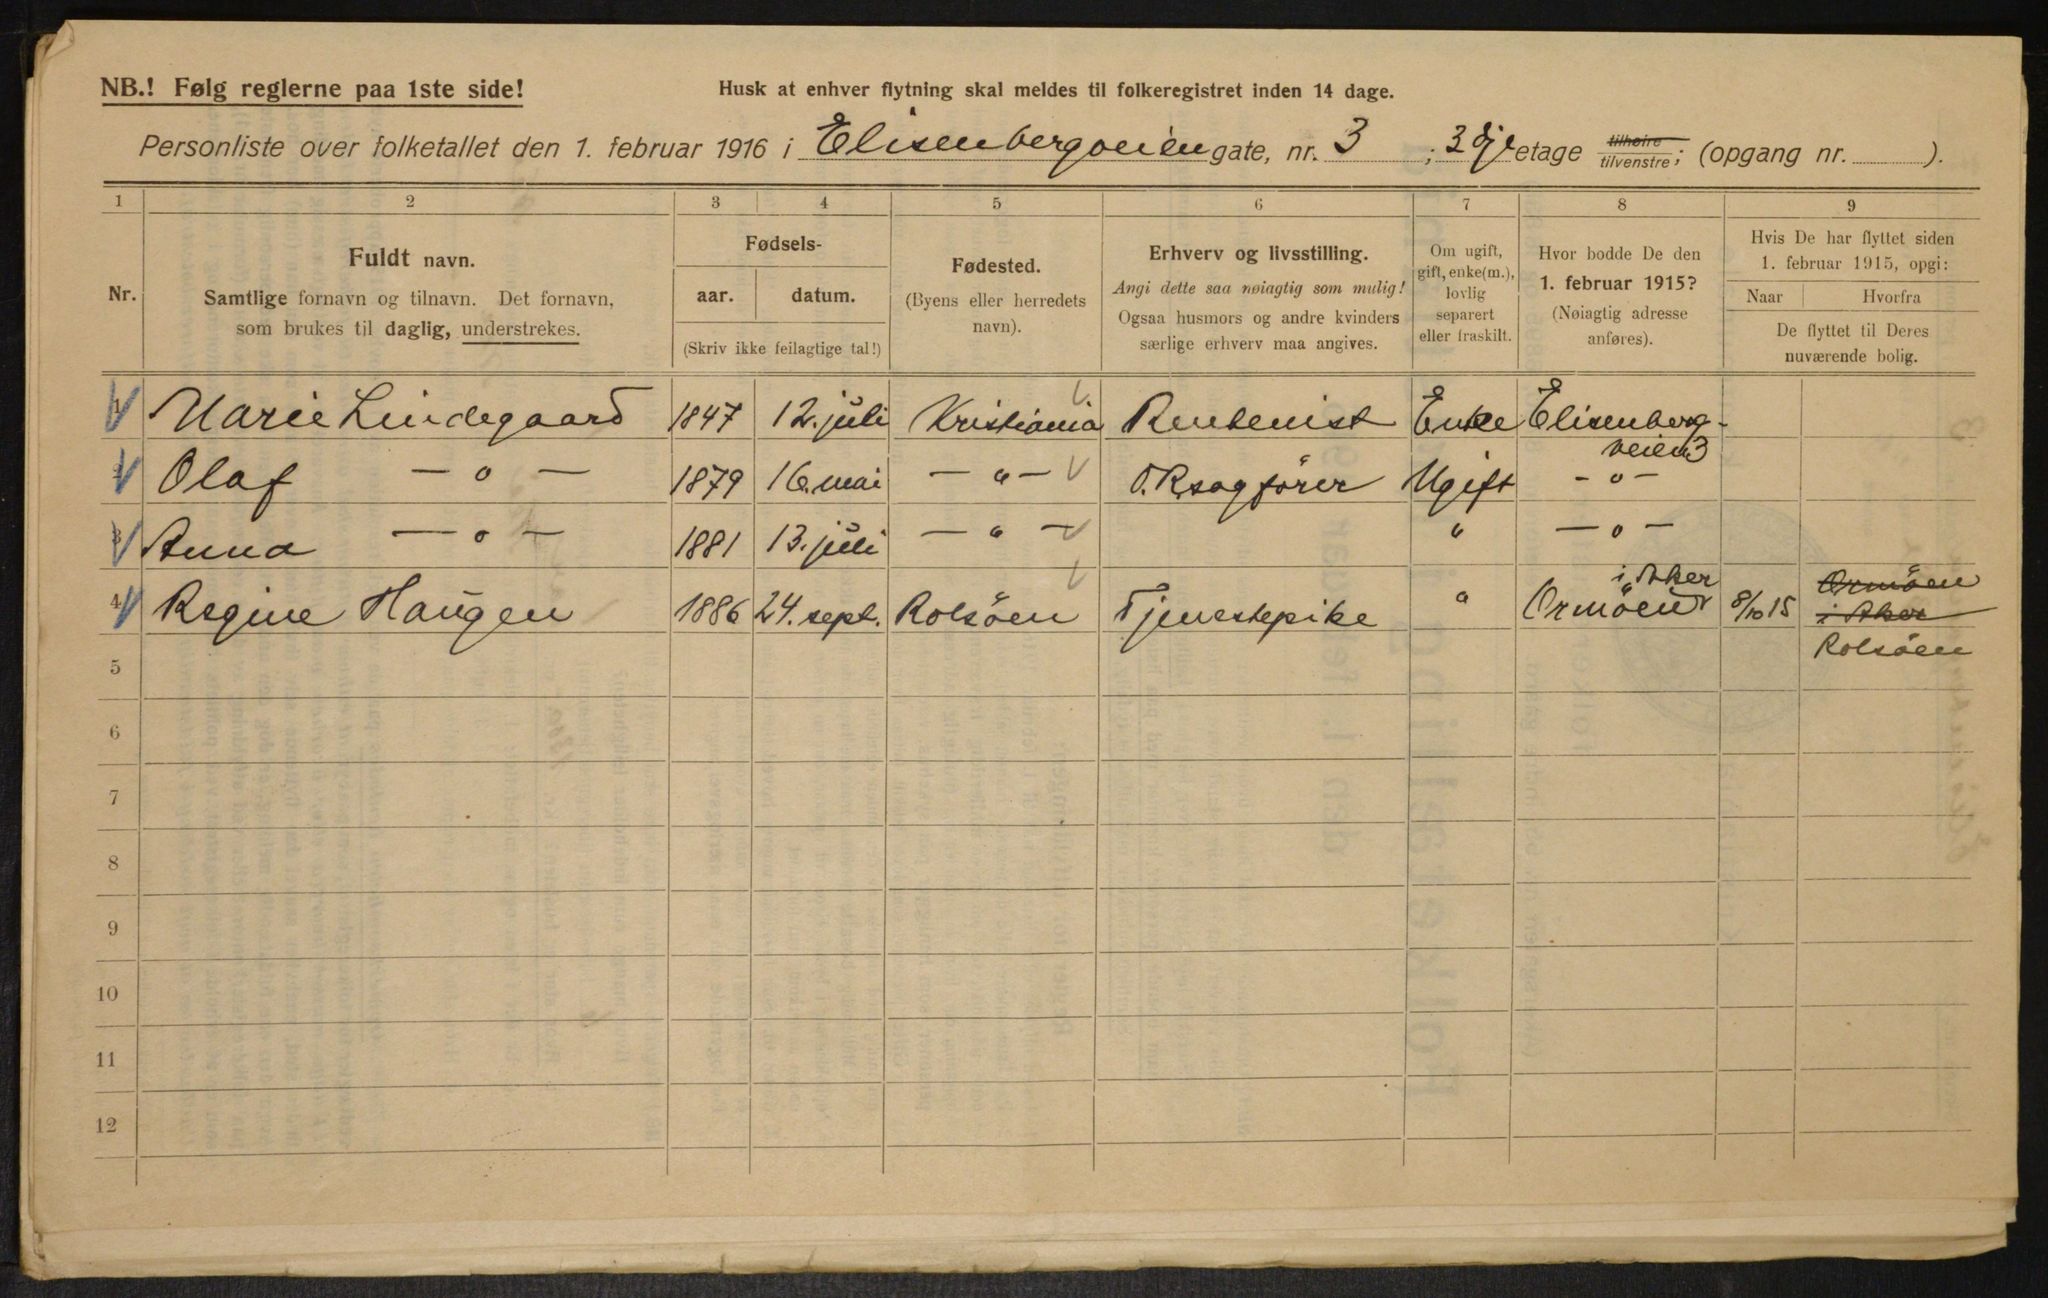 NB.! Følg reglerne paa 1ste side!
Husk at enhver flytning skal meldes til folkeregistret inden 14 dage.
Personliste over folketallet den 1. februar 1916 i Elisenbergveien gate, nr. 3; 3dje etage tilhøire tilvenstre; (opgang nr. ).
1 2 3 4 5 6 7 8 9
Nr.
Fuldt navn.
Samtlige fornavn og tilnavn. Det fornavn,
som brukes til daglig, understrekes.
Fødsels-
aar. datum.
(Skriv ikke feilagtige tal!)
Fødested.
(Byens eller herredets
navn).
Erhverv og livsstilling.
Angi dette saa nøiagtig som mulig!
Ogsaa husmors og andre kvinders
særlige erhverv maa angives.
Om ugift,
gift, enke(m.),
lovlig
separert
eller fraskilt.
Hvor bodde De den
1. februar 1915?
(Nøiagtig adresse
anføres).
Hvis De har flyttet siden
1. februar 1915, opgi:
Naar Hvorfra
De flyttet til Deres
nuværende bolig.
1 Marie Lindegaard 1847 12. juli Kristiania Rentenist Enke Elisenberg-
veien 3
2 Olaf — " — 1879 16. mai — " — O.Rsagfører Ugift — " —
3 Anna — " — 1881 13. juli — " — " — " —
4 Regine Haugen 1886 24. sept. Rolsöen Tjenestepike " Ormöen i Aker 8/10 15 Ormöen
i Aker
Rolsöen
5
6
7
8
9
10
11
12